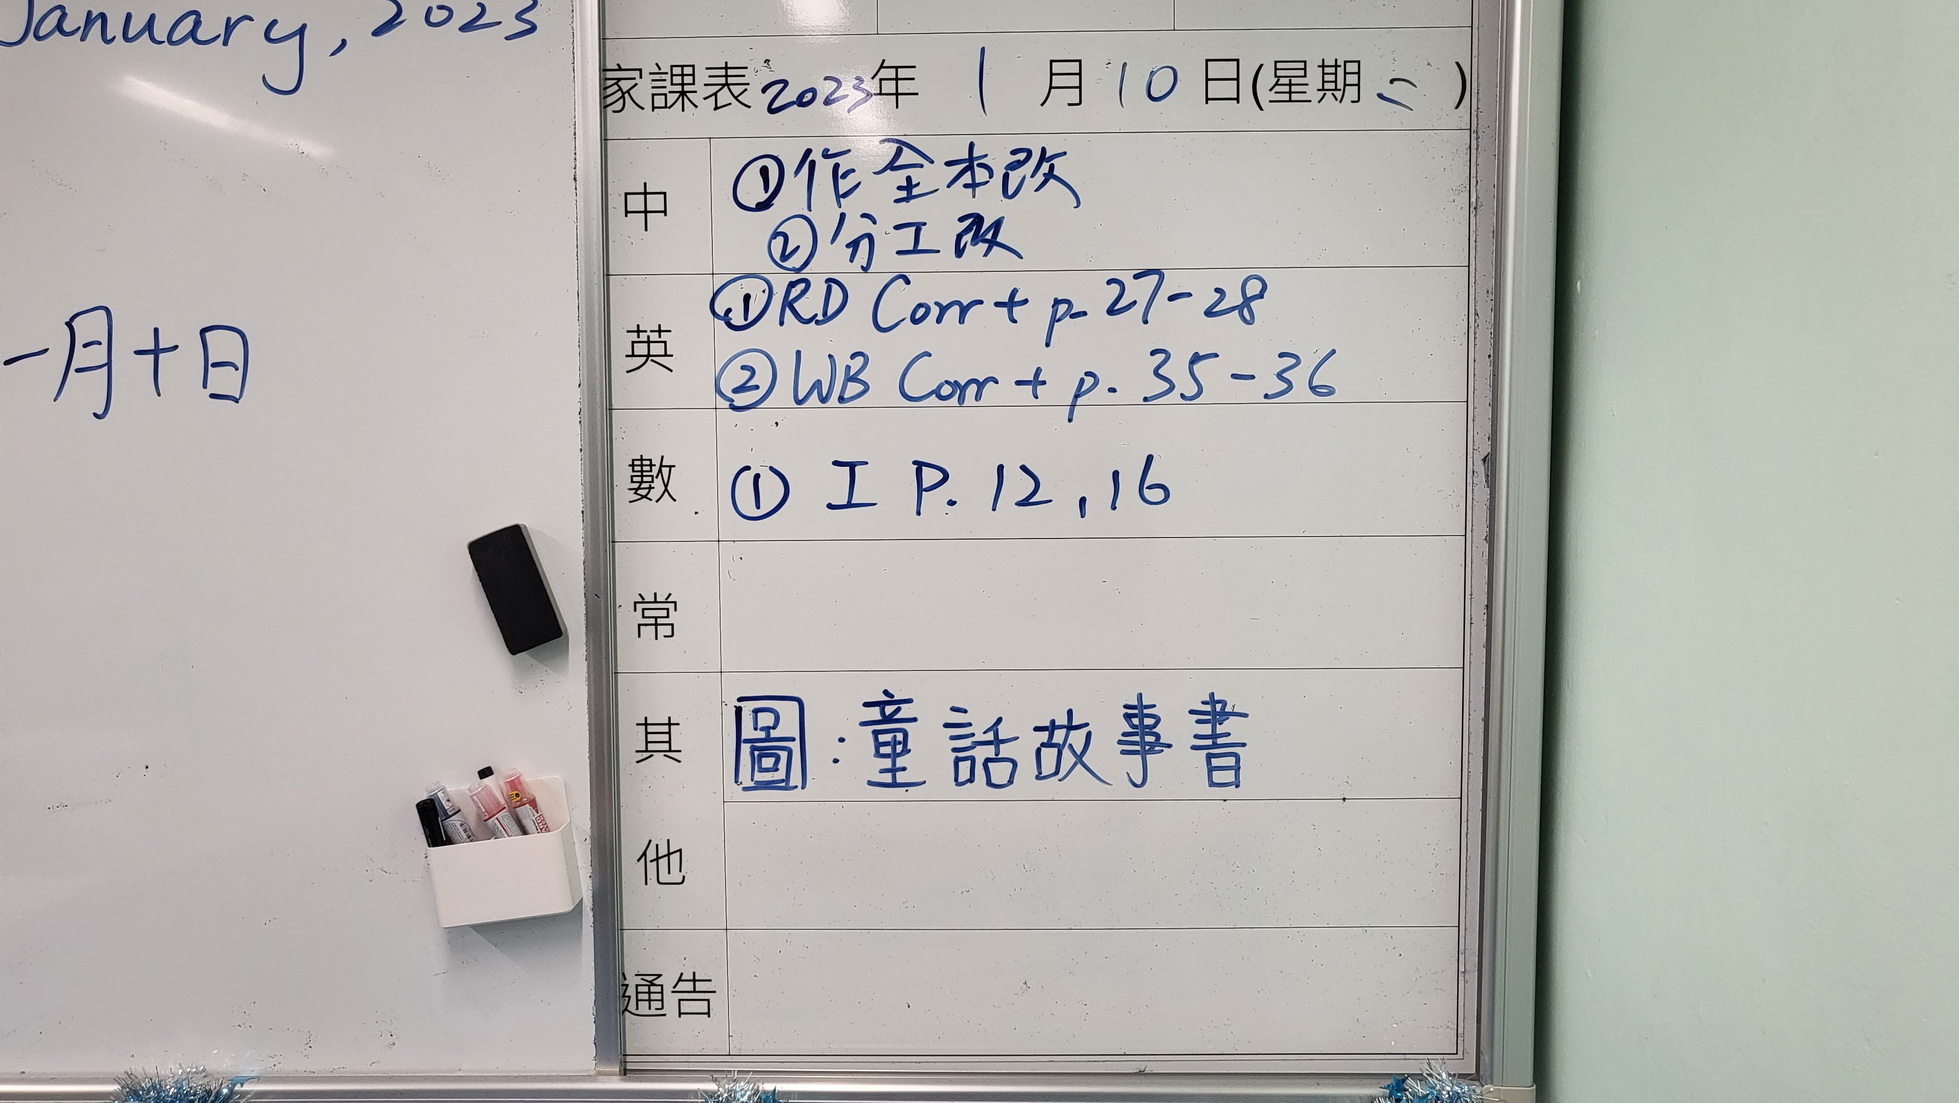 January, 2023
一月十日
家課表2023年 1 月 10 日(星期二)
中
①作全本改
②分工改
英
①RD Corr + p. 27-28
②WB Corr + p. 35-36
數
① 工 P. 12, 16
常
其
圖:童話故事書
他
通告